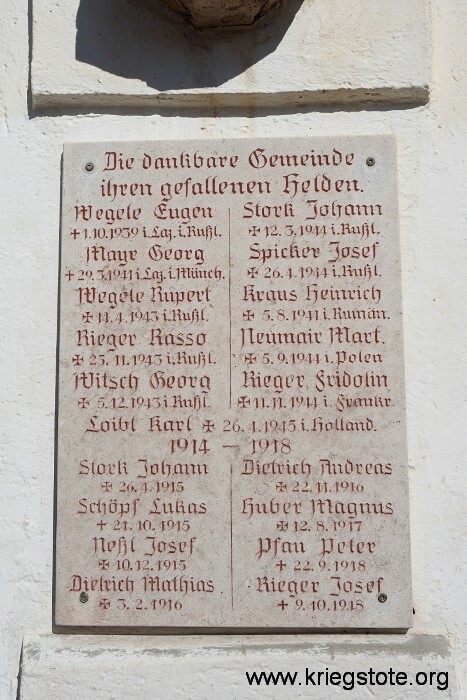 Die dankbare Gemeinde
ihren gefallenen Helden.
Wegele Eugen
✝ 1.10.1939 i. Laz. i. Rußl.
Mayr Georg
✝ 29.3.1941 i. Laz. i. Münch.
Wegele Rupert
✠ 14.4.1943 i. Rußl.
Rieger Rasso
✠ 25.11.1943 i. Rußl.
Witsch Georg
✠ 5.12.1943 i. Rußl.
Stork Johann
✠ 12.3.1944 i. Rußl.
Spicker Josef
✠ 26.4.1944 i. Rußl.
Kraus Heinrich
✠ 5.8.1944 i. Rumän.
Neumair Mart.
✠ 5.9.1944 i. Polen
Rieger Fridolin
✠ 11.11.1944 i. Frankr.
Loibl Karl ✠ 26.4.1945 i. Holland.
1914 – 1918
Stork Johann
✠ 26.4.1915
Schöpf Lukas
✝ 21.10.1915
Neßl Josef
✠ 10.12.1915
Dietrich Mathias
✠ 3.2.1916
Dietrich Andreas
✠ 22.11.1916
Huber Magnus
✠ 12.8.1917
Pfau Peter
✝ 22.9.1918
Rieger Josef
✝ 9.10.1918
www.kriegstote.org